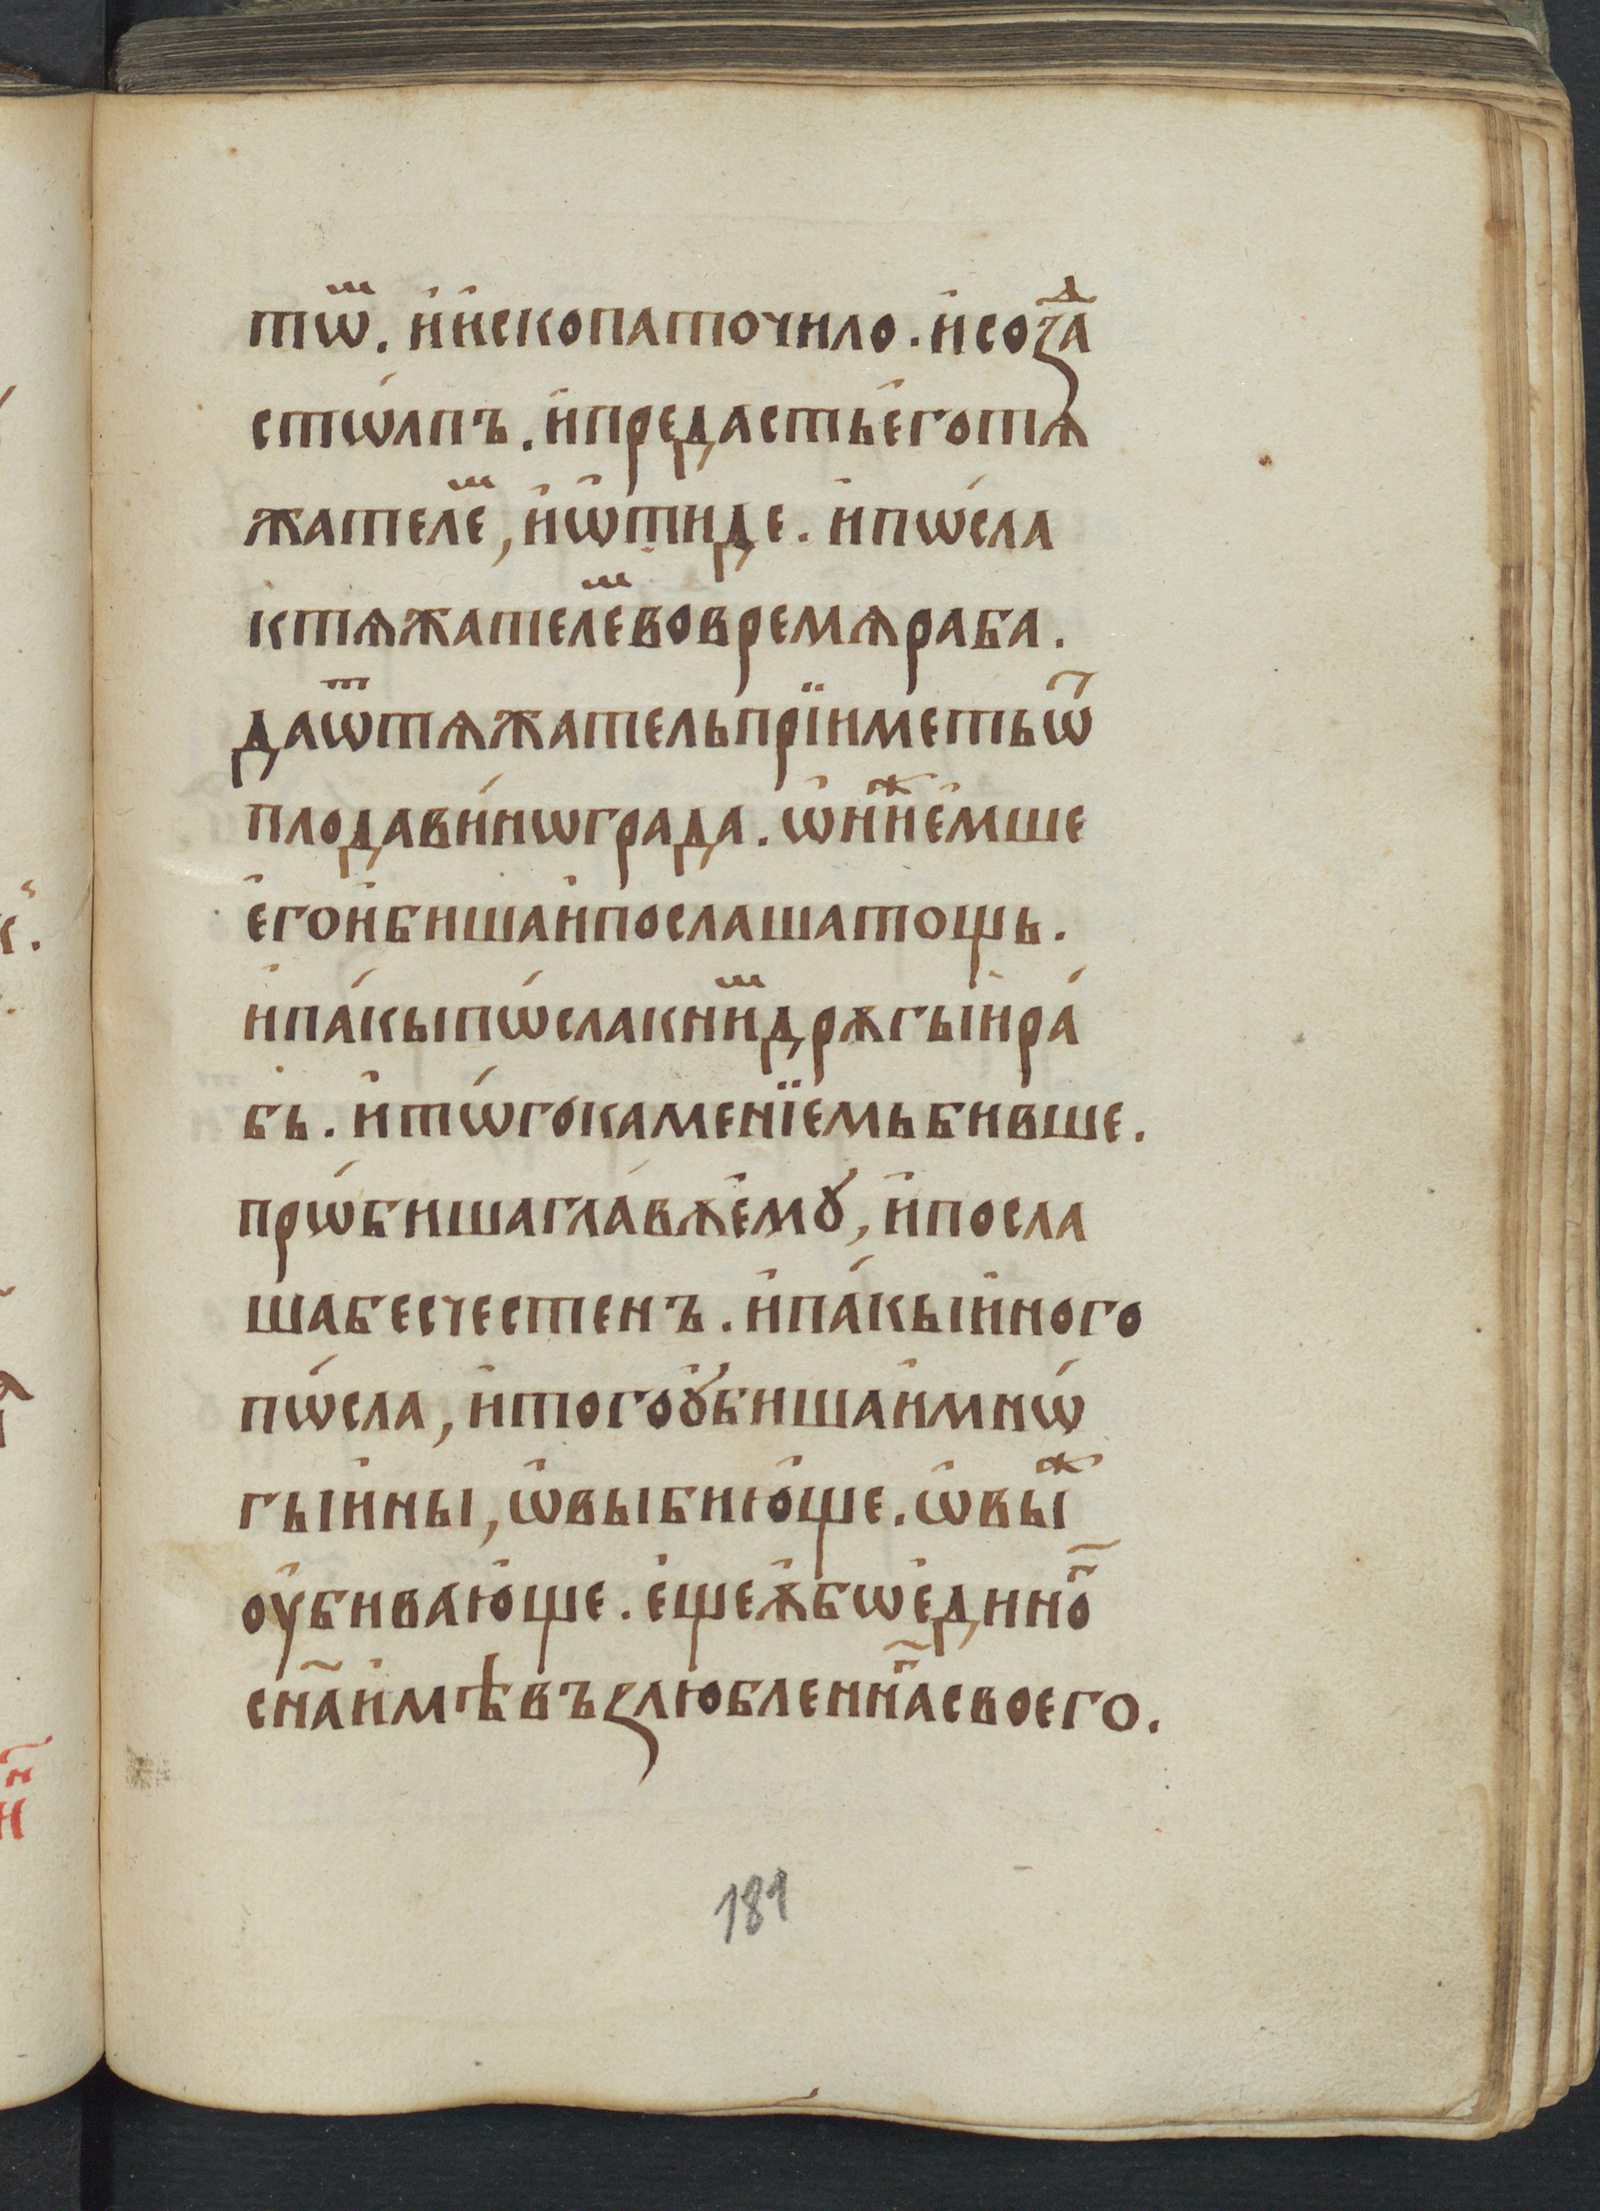 тѡⷨ. и҆и҆скопаточило. и҆соꙁаⷣ
стѡ́лпъ. и҆предастье҆готѧ
жателеⷨ, и҆ѿтиде. и҆пѡ́сла
ктѧжателеⷨвовремѧраба.
даѿтѧжательпрїиметьѿ
плодави́нѡграда. ѡ҆ниⷤе҆мше
е҆гои҆бишаи҆послашатощь.
и҆па́кыпѡ́слакниⷨдрѫгыи҆ра́
бь. и҆тѡ́гокаменїемьбивше.
прѡ́бишагла́вѫе҆мꙋ, и҆посла
шабесчестенъ. и҆па́кыи҆ного
пѡ́сла, и҆тогоꙋ҆бишаи҆мнѡ́
гыи҆ны, ѡ҆выбию҆ще. ѡ҆выⷤ
оу҆биваю҆ще. е҆щеѫ҆бѡе҆диноⷢ҇
сн҃аи҆мѣвъꙁлюбленнаⷢ҇своего.
181